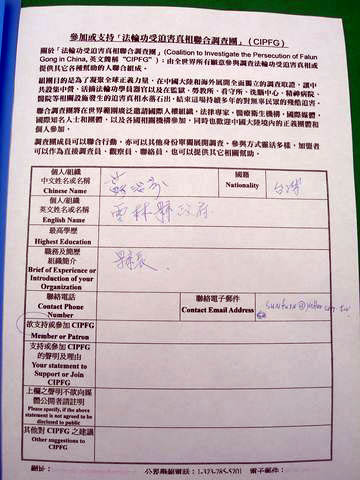 參加或支持「法輪功受迫害真相聯合調查團」(CIPFG)
關於「法輪功受迫害真相聯合調查團」(Coalition to Investigate the Persecution of Falun
Gong in China, 英文簡稱 "CIPFG"):由全世界所有願意參與調查法輪功受迫害真相或
提供其它各種幫助的人聯合組成。
組團目的是為了凝聚全球正義力量,在中國大陸和海外展開全面獨立的調查取證,讓中
共設集中營、活摘法輪功學員器官以及在監獄、勞教所、看守所、洗腦中心、精神病院、
醫院等相關設施發生的迫害真相水落石出,結束這場持續多年的對無辜民眾的殘酷迫害。
聯合調查團將在世界範圍廣泛邀請國際人權組織、法律專家、醫療衛生機構、國際媒體、
國際知名人士和團體、以及各國相關機構參加,同時也歡迎中國大陸境內的正義團體和
個人參加。
調查團成員可以聯合行動,亦可以其他身份單獨展開調查,參與方式靈活多樣,加盟者
可以作為直接調查員、觀察員、聯絡員,也可以提供其它相關幫助。
個人/組織
中文姓名或名稱
Chinese Name
蘇
國籍
Nationality
台灣
個人/組織
英文姓名或名稱
English Name
雲林縣政府
最高學歷
Highest Education
職務及簡歷
組織簡介
Brief of Experience or
Introduction of your
Organization
縣長
聯絡電話
Contact Phone
Number
聯絡電子郵件
Contact Email Address
欲支持或參加 CIPFG
Member or Patron
支持或參加 CIPFG
的聲明及理由
Your statement to
Support or Join
CIPFG
上欄之聲明不欲向媒
體公開者請註明
Please specify, if the above
statement is not agreed to be
disclosed to public
其他對 CIPFG 之建議
Other suggestions to
CIPFG